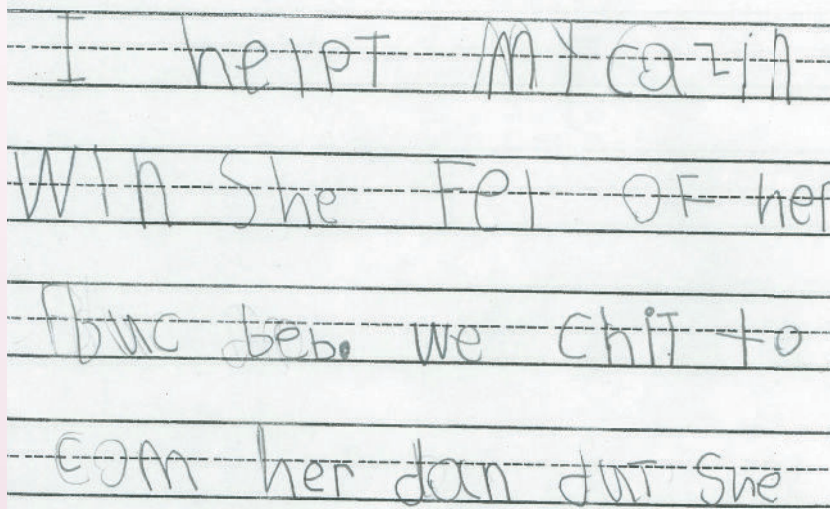 I helpt my cazin
Win She Fel OF her
buc beb. we chit to
com her dan dut She